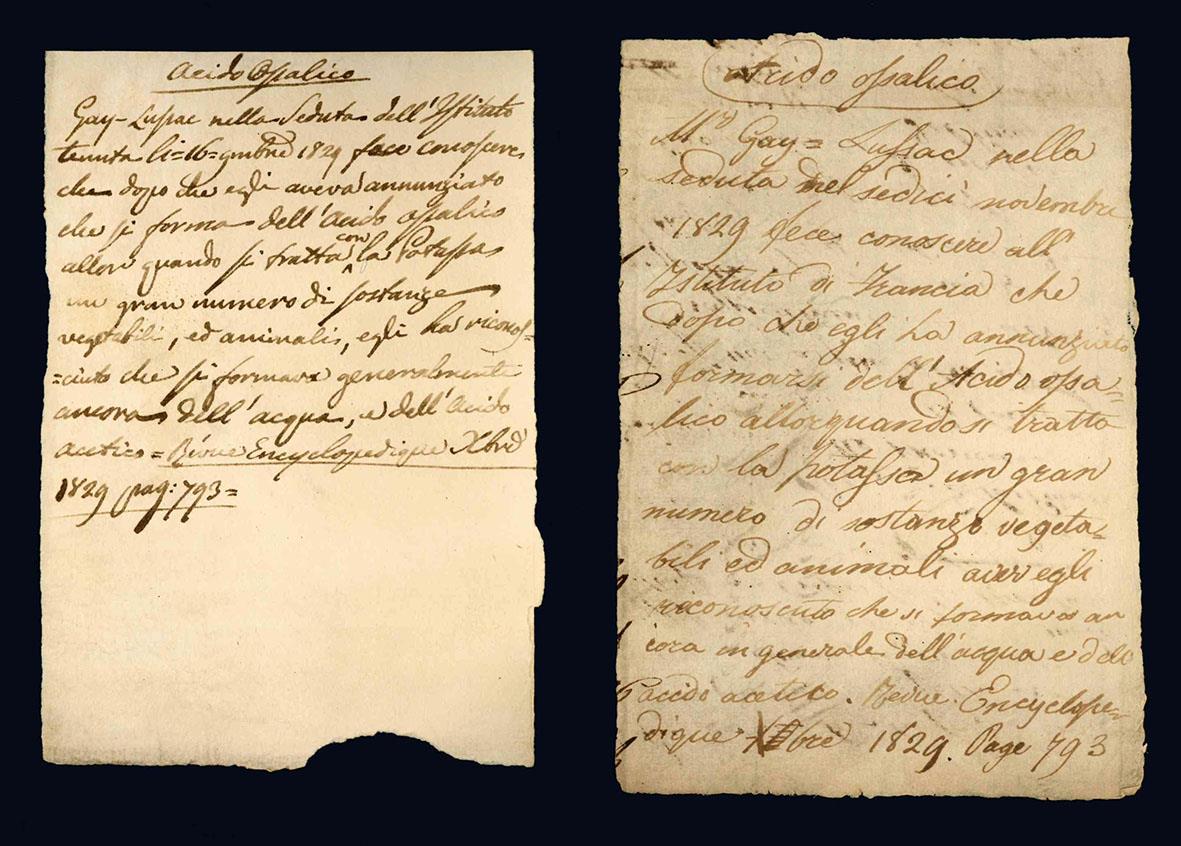 Acido Ossalico
Gay-Lussac nella Seduta dell'Istituto
tenuta li=16=9mbre 1829 fece conoscere
che dopo che egli aveva annunziato
che si forma dell'Acido ossalico
allor quando si tratta con la Potassa
un gran numero di sostanze
vegetabili, ed animali, egli ha riconos=
=ciuto che si formava generalmente
ancora dell'acqua, e dell'Acido
acetico = Révue Encyclopedique Xbre
1829 pag: 793=
Acido ossalico.
Mr Gay=Lussac nella
seduta del sedici novembre
1829 fece conoscere all'
Istituto di Francia che
dopo che egli ha annunziato
formarsi dell'Acido ossa=
lico allorquando si tratta
con la potassa un gran
numero di sostanze vegeta=
bili ed animali aver egli
riconosciuto che si formava an
cora in generale dell'acqua e dell
acido acetico. Revue Encyclope=
dique Xbre 1829. Page 793